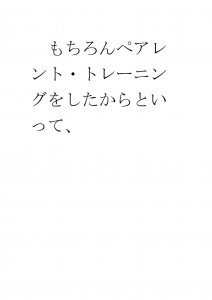 もちろんペアレ
ント・トレーニン
グをしたからとい
って、